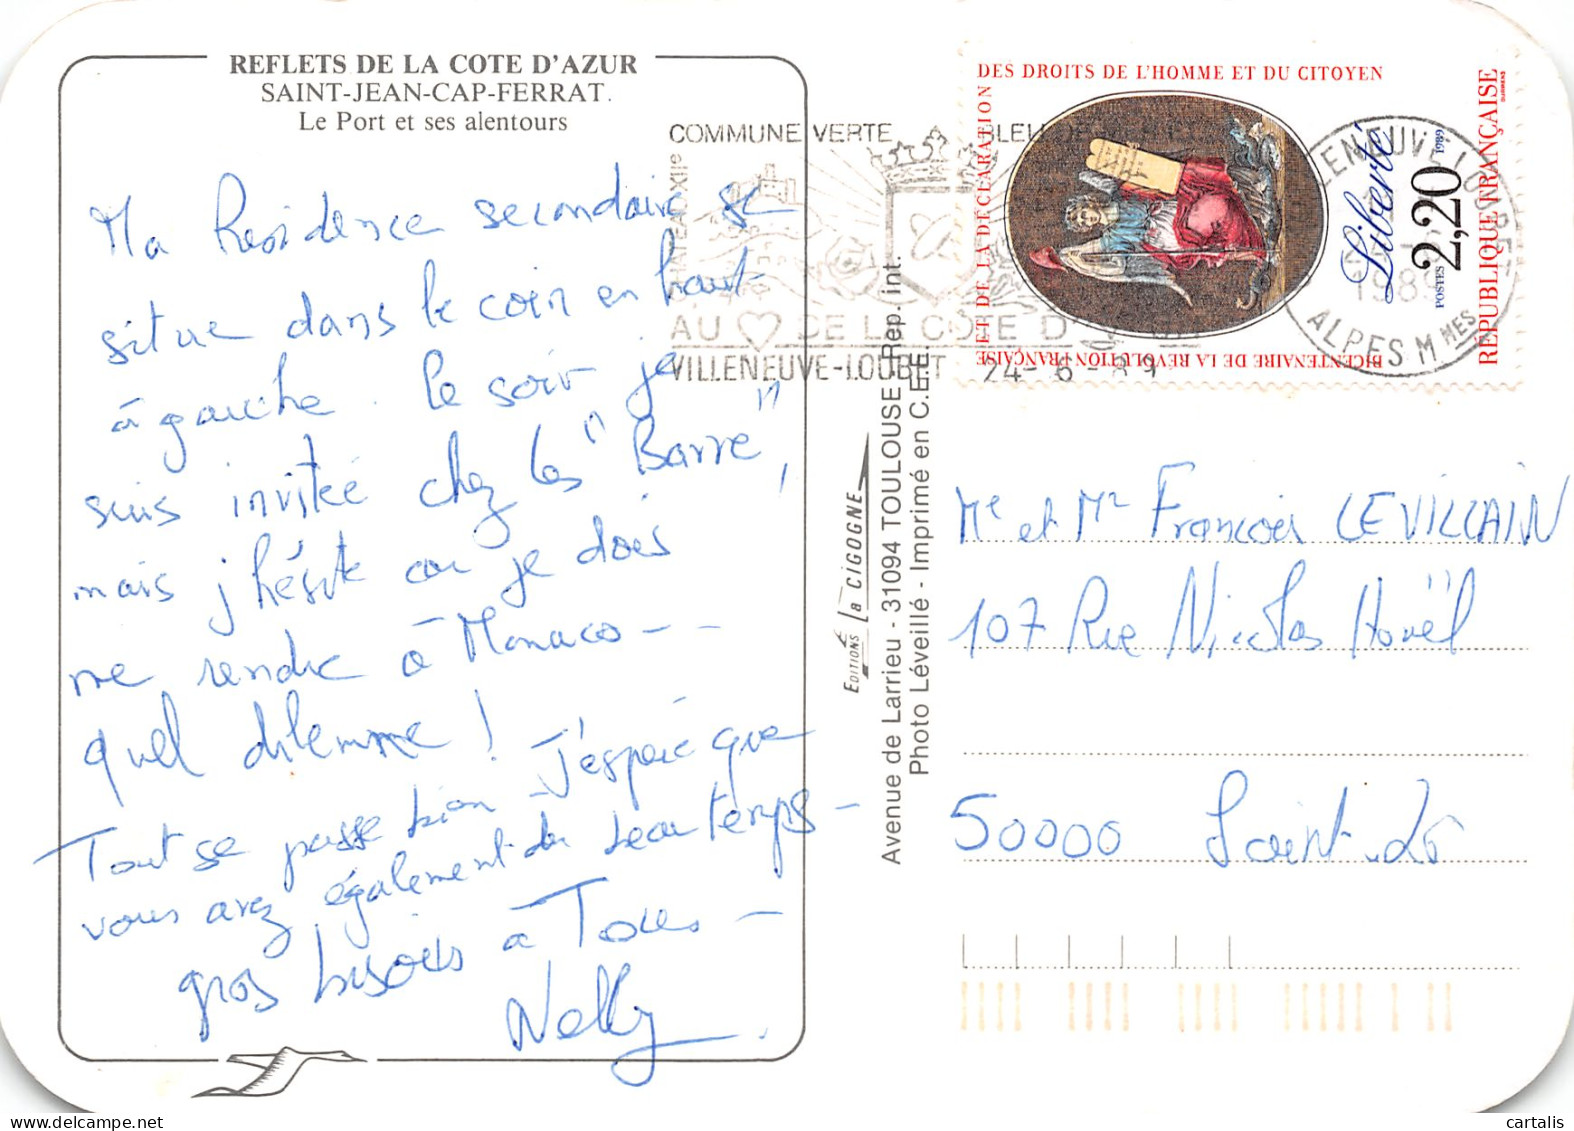 REFLETS DE LA COTE D'AZUR
SAINT-JEAN-CAP-FERRAT.
Le Port et ses alentours
Ma Résidence secondaire se
situe dans le coin en haut
à gauche. Le soir je
suis invitée chez les "Barre",
mais j'hésite car je dois
me rendre à Monaco - -
quel dilemme !
Tout se passe bien - J'espère que
vous avez également du beau temps -
gros bisous à Tous -
Nelly.
COMMUNE VERTE
CHATEAU XIIe
AU DE LA COTE D
VILLENEUVE-LOUBET
24-6-89
DES DROITS DE L'HOMME ET DU CITOYEN
ET DE LA DÉCLARATION
BICENTENAIRE DE LA RÉVOLUTION FRANÇAISE
Liberté
1989
POSTES 2,20
RÉPUBLIQUE FRANÇAISE
VILLENEUVE-LOUBET
1989
ALPES MMES
EDITIONS La CIGOGNE
Avenue de Larrieu - 31094 TOULOUSE - Rep. int.
Photo Léveillé - Imprimé en C.E.E.
Me et Mr François LEVILLAIN
107 Rue Nicolas Houël
50000 Saint-Lô
cartalis